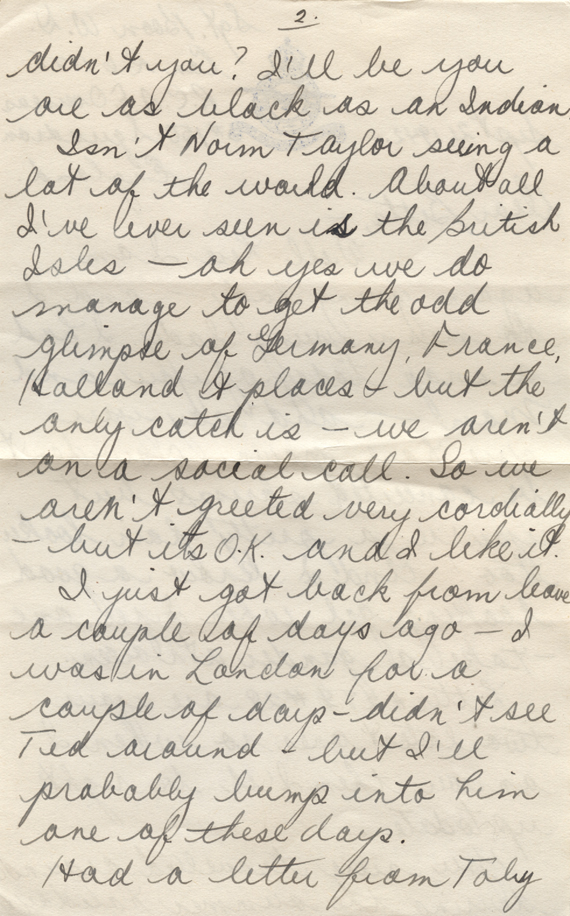 2.
didn't you? I'll be you
are as black as an Indian
Isn't Norm Taylor seeing a
lot of the world. About all
I've ever seen is the British
Isles — oh yes we do
manage to get the odd
glimpse of Germany, France,
Holland & places - but the
only catch is — we aren't
on a social call. So we
aren't greeted very cordially
- but its O.K. and I like it.
I just got back from leave
a couple of days ago — I
was in London for a
couple of days - didn't see
Ted around - but I'll
probably bump into him
one of these days.
Had a letter from Toby